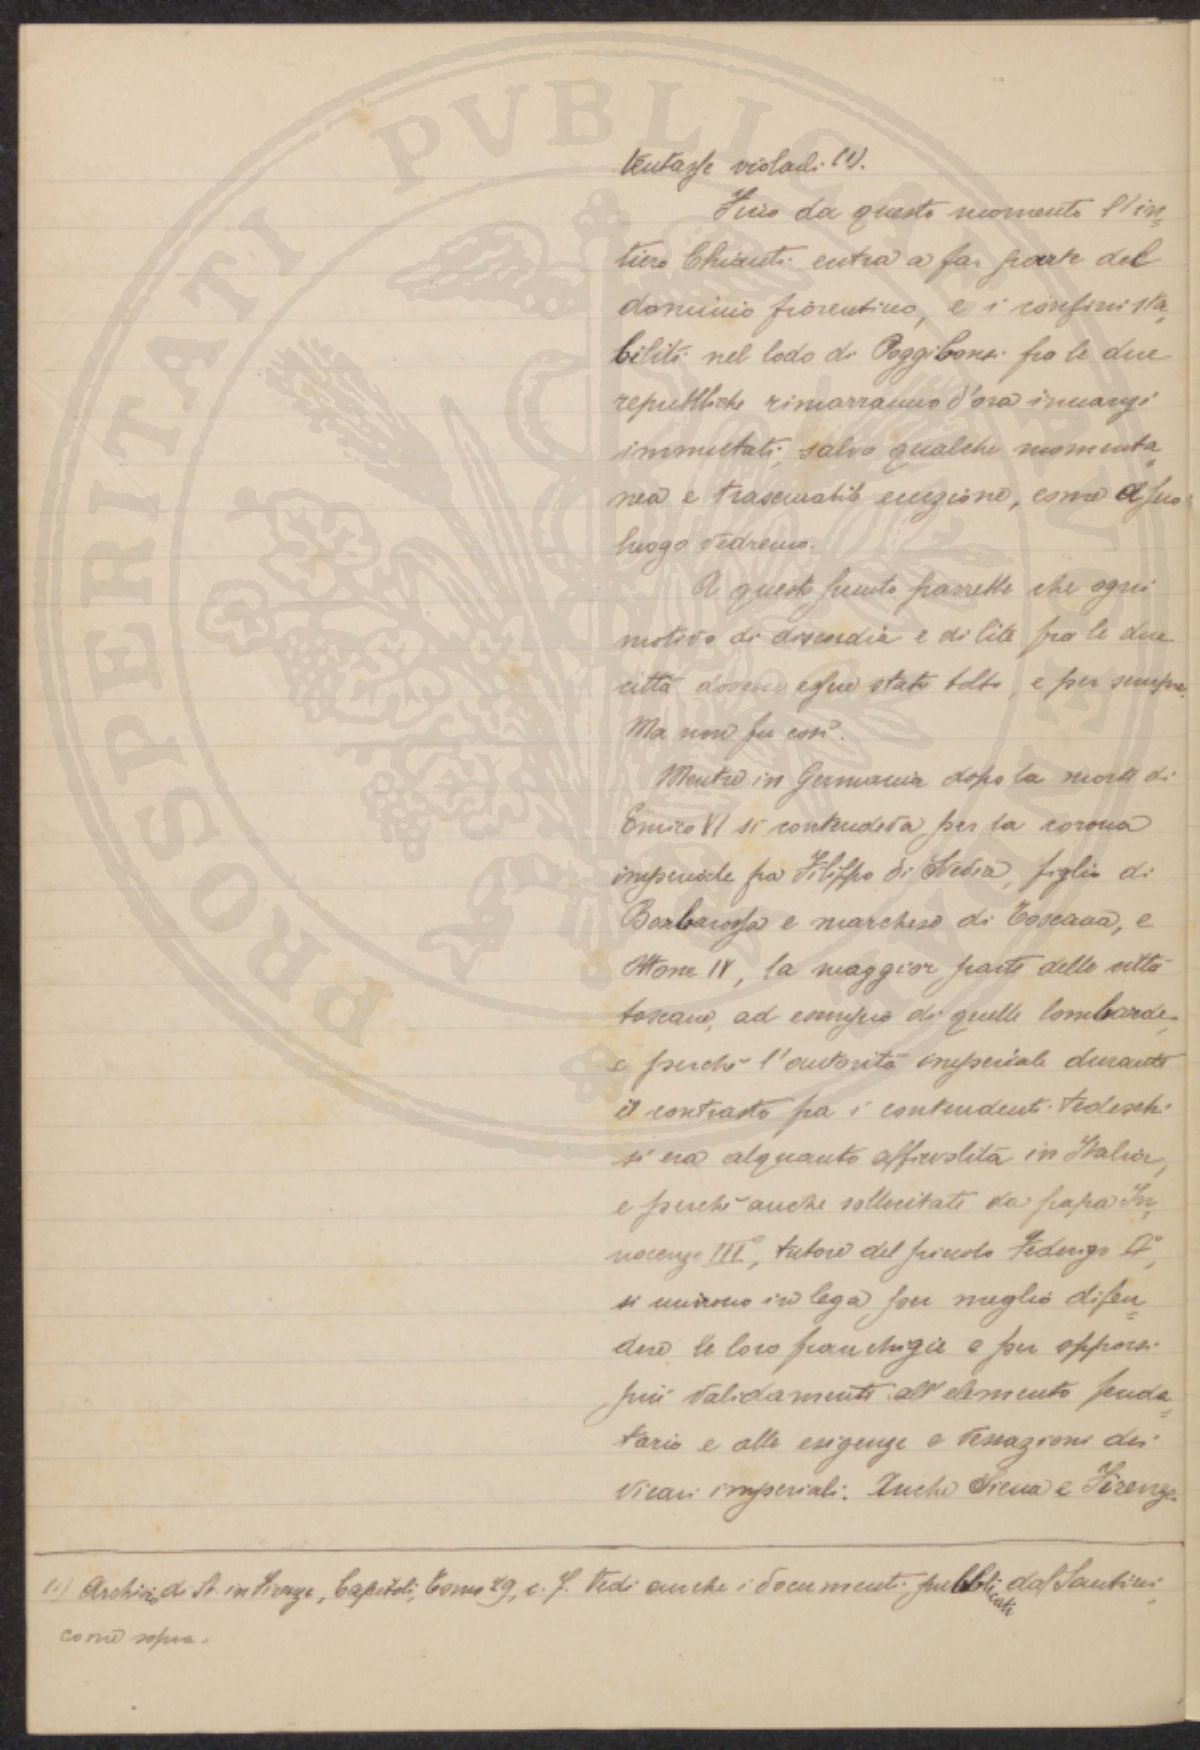 PROSPERITATI PVBLICAE
tentasse violarli (1).
Fino da questo momento l'in=
tiero Chianti entra a far parte del
dominio fiorentino, e i confini sta=
biliti nel lodo di Poggibonsi fra le due
repubbliche rimarranno d'ora innanzi
immutati, salvo qualche momenta=
nea e trascurabile eccezione, come a suo
luogo vedremo.
A questo punto parrebbe che ogni
motivo di discordia e di lite fra le due
città dovesse essere stato tolto, e per sempre.
Ma non fu così.
Mentre in Germania dopo la morte di
Enrico VI si contendeva per la corona
imperiale fra Filippo di Svevia, figlio di
Barbarossa e marchese di Toscana, e
Ottone IV, la maggior parte delle città
toscane, ad esempio di quelle lombarde,
e perchè l'autorità imperiale durante
il contrasto fra i contendenti tedeschi
si era alquanto affievolita in Italia,
e perchè anche sollecitate da papa In=
nocenzo III°, tutore del piccolo Federigo II°,
si unirono in lega per meglio difen=
dere le loro franchigie e per opporsi
più validamente all'elemento feuda=
tario e alle esigenze e vessazioni dei
vicari imperiali. Anche Siena e Firenze
(1) Archivio di St. in Firenze, Capitoli, Tomo 29, c. 7. Vedi anche i documenti pubblicati dal Santini,
come sopra.